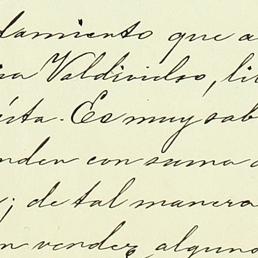 damiento que a
Valdivielso, li
sta. Es muy sab
nden con suma
; de tal manera
n vender alguno